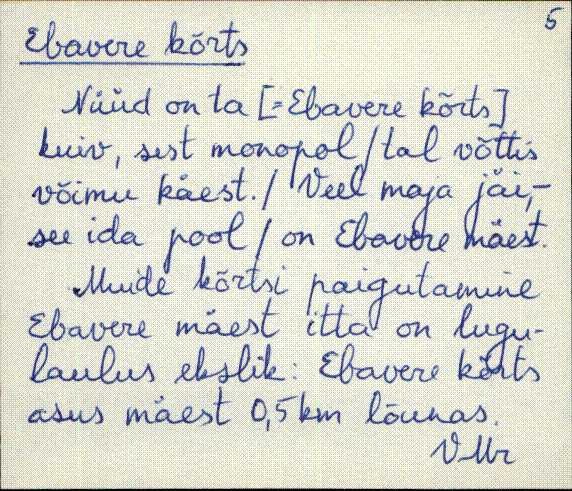 5
Ebavere kõrts
Nüüd on ta [= Ebavere kõrts]
kuiv, sest monopol / tal võttis
võimu käest. / Veel maja jäi, –
see ida pool / on Ebavere mäest.
Muide kõrtsi paigutamine
Ebavere mäest itta on lugu-
laulus ekslik: Ebavere kõrts
asus mäest 0,5 km lõunas.
VMr